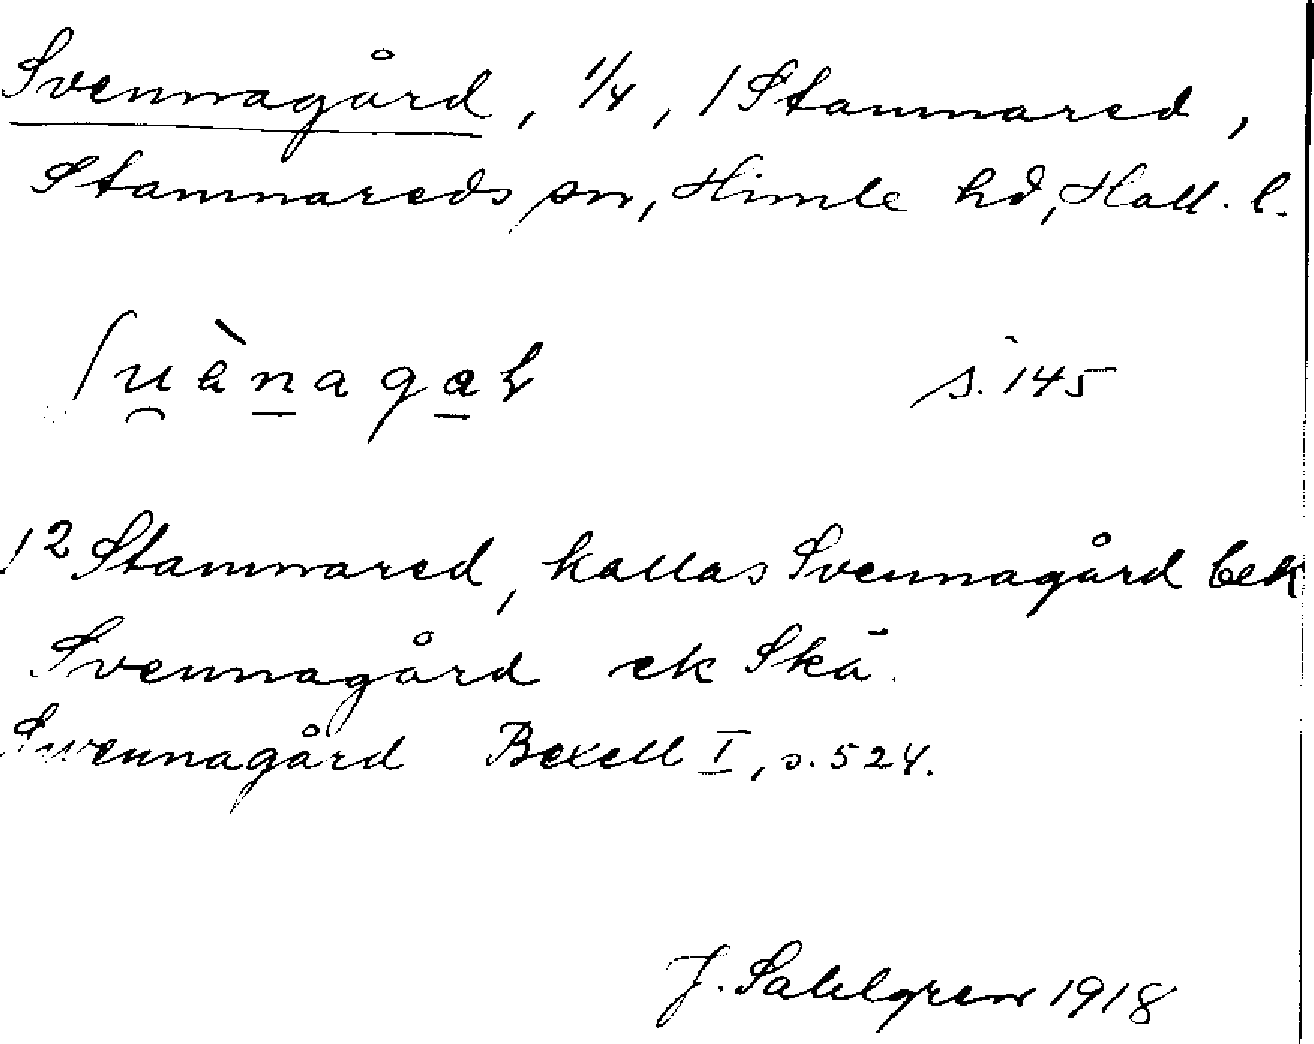 Svennagård, 1/4, 1 Stamnared,
Stamnareds sn, Himle hd, Hall. l.
s. 145
1² Stamnared, kallas Svennagård bek
Svennagård ek Skä.
Svennagård Bexell I, s. 524.
J. Sahlgren 1918